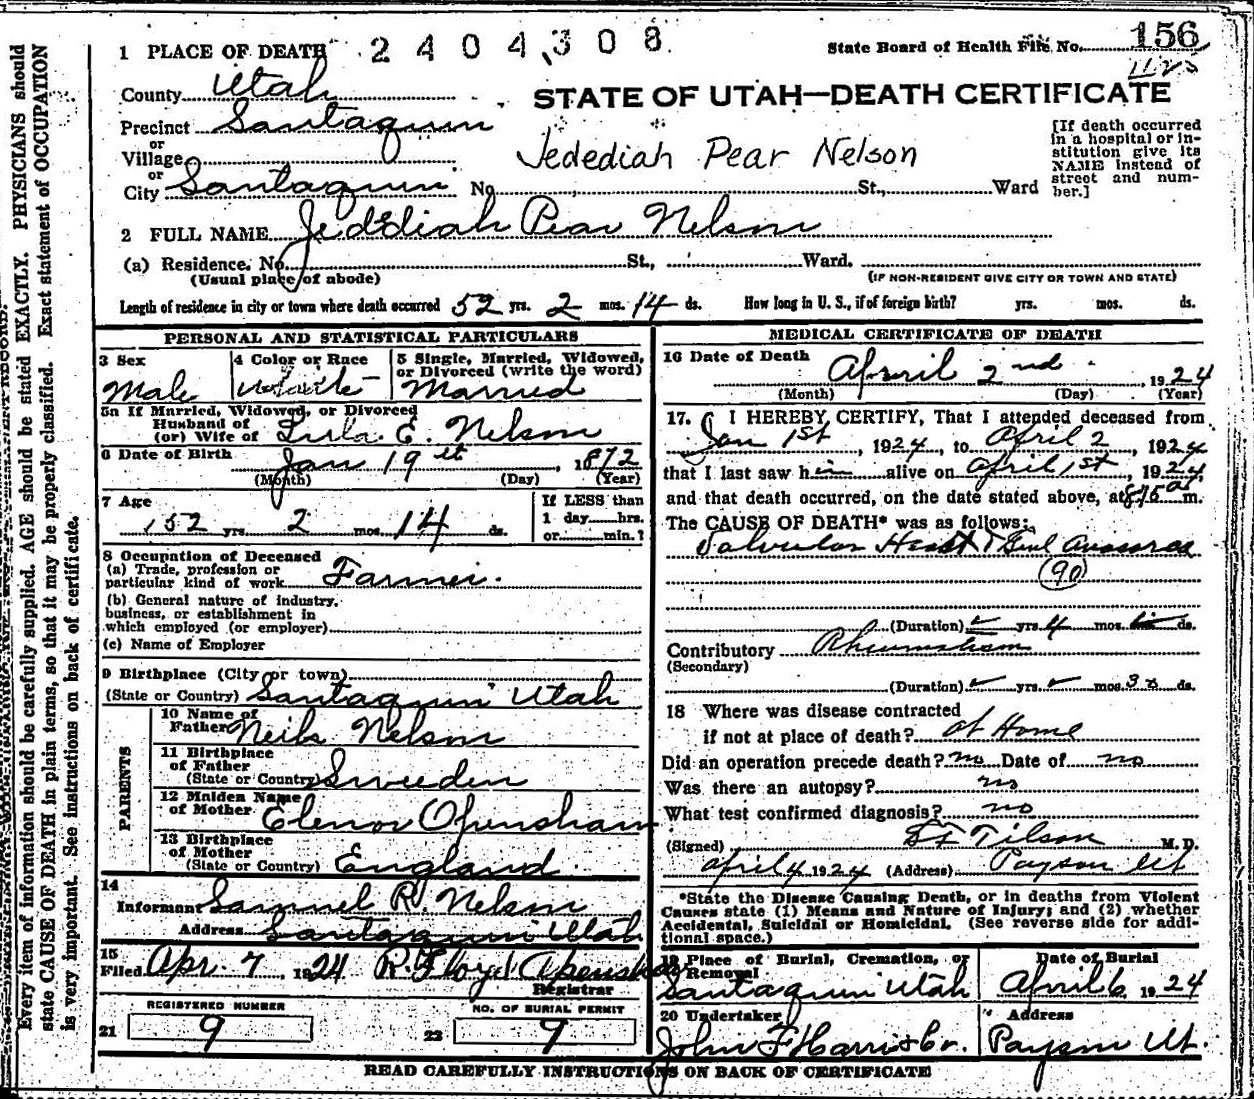 1 PLACE OF DEATH 2404308 State Board of Health File No. 156
County Utah
STATE OF UTAH—DEATH CERTIFICATE
Precinct Santaquin
or
Village
or
City Santaquin No. St., Ward
Jedediah Pear Nelson
[If death occurred
in a hospital or in-
stitution give its
NAME instead of
street and num-
ber.]
2 FULL NAME Jedediah Pear Nelson
(a) Residence. No. St., Ward.
(Usual place of abode) (IF NON-RESIDENT GIVE CITY OR TOWN AND STATE)
Length of residence in city or town where death occurred 52 yrs. 2 mos. 14 ds. How long in U. S., if of foreign birth? yrs. mos. ds.
PERSONAL AND STATISTICAL PARTICULARS
3 Sex
Male
4 Color or Race
White
5 Single, Married, Widowed,
or Divorced (write the word)
Married
5a If Married, Widowed, or Divorced
Husband of
(or) Wife of Lula E. Nelson
6 Date of Birth Jan 19th, 1872
(Month) (Day) (Year)
7 Age
52 yrs. 2 mos. 14 ds.
If LESS than
1 day hrs.
or min.?
8 Occupation of Deceased
(a) Trade, profession or
particular kind of work Farmer.
(b) General nature of industry,
business, or establishment in
which employed (or employer)
(c) Name of Employer
9 Birthplace (City or town)
(State or Country) Santaquin Utah
PARENTS
10 Name of
Father Neils Nelson
11 Birthplace
of Father
(State or Country) Sweeden
12 Maiden Name
of Mother Elenor Openshaw
13 Birthplace
of Mother
(State or Country) England
14
Informant Samuel R. Nelson
Address Santaquin Utah
15
Filed Apr. 7, 1924 R. Floyd Openshaw
Registrar
REGISTERED NUMBER
21 9
NO. OF BURIAL PERMIT
22 9
MEDICAL CERTIFICATE OF DEATH
16 Date of Death
April 2nd, 1924
(Month) (Day) (Year)
17. I HEREBY CERTIFY, That I attended deceased from
Jan 1st, 1924, to April 2, 1924
that I last saw him alive on April 1st, 1924,
and that death occurred, on the date stated above, at 815 a m.
The CAUSE OF DEATH* was as follows:
Valvular Heart
90
(Duration) yrs. 4 mos. ds.
Contributory Rheumatism
(Secondary)
(Duration) yrs. mos. 30 ds.
18 Where was disease contracted
if not at place of death? at Home
Did an operation precede death? no Date of no
Was there an autopsy? no
What test confirmed diagnosis? no
(Signed) Tilson M. D.
April 4 1924 (Address) Payson Ut
*State the Disease Causing Death, or in deaths from Violent
Causes state (1) Means and Nature of Injury; and (2) whether
Accidental, Suicidal or Homicidal. (See reverse side for addi-
tional space.)
19 Place of Burial, Cremation, or
Removal
Santaquin Utah
Date of Burial
April 6 1924
20 Undertaker
John F Harris & Co.
Address
Payson Ut.
READ CAREFULLY INSTRUCTIONS ON BACK OF CERTIFICATE
Every item of information should be carefully supplied. AGE should be stated EXACTLY. PHYSICIANS should
state CAUSE OF DEATH in plain terms, so that it may be properly classified. Exact statement of OCCUPATION
is very important. See instructions on back of certificate.